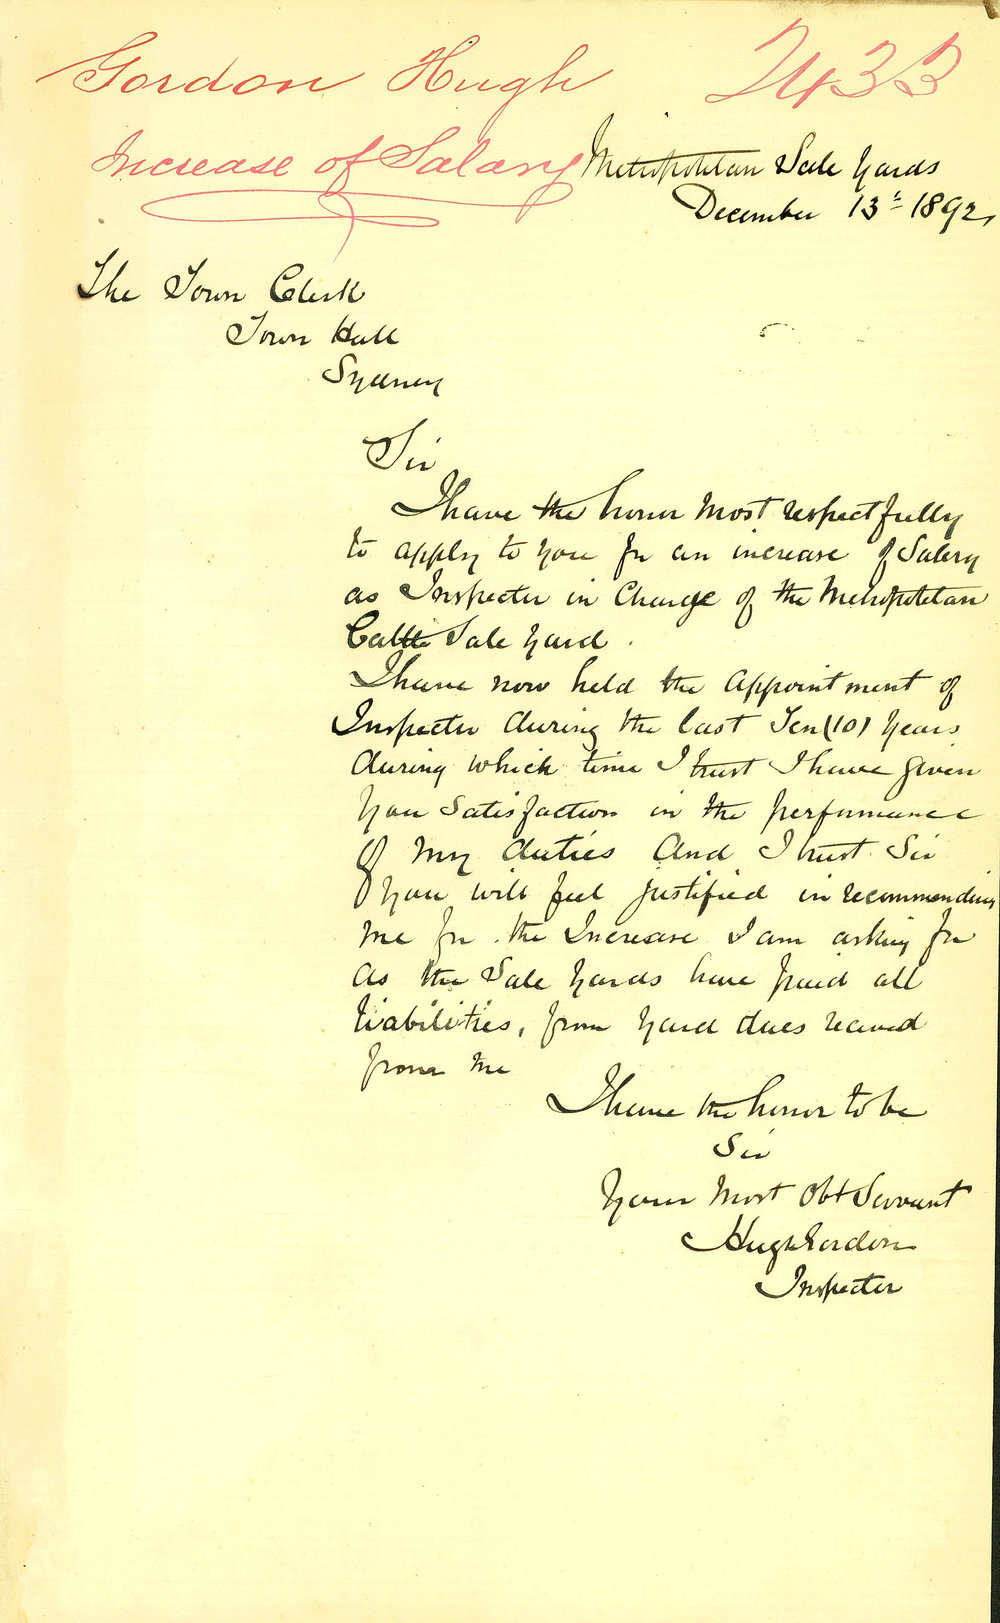 Gordon Hugh 2433
Increase of Salary
Metropolitan Sale Yards
December 13th 1892,
The Town Clerk
Town Hall
Sydney
Sir
I have the honor most respectfully
to apply to you for an increase of Salery
as Inspecter in Charge of the Metropolitan
Cattle Sale Yard.
I have now held the appointment of
Inspecter during the last Ten (10) Years
during which time I trust I have given
you satisfaction in the performance
of my duties And I trust Sir
you will feel justified in recommending
me for the Increase I am asking for
as the Sale Yards have paid all
liabilities, from yard dues received
from me
I have the honor to be
Sir
Your Most Obt Servant
Hugh Gordon
Inspecter